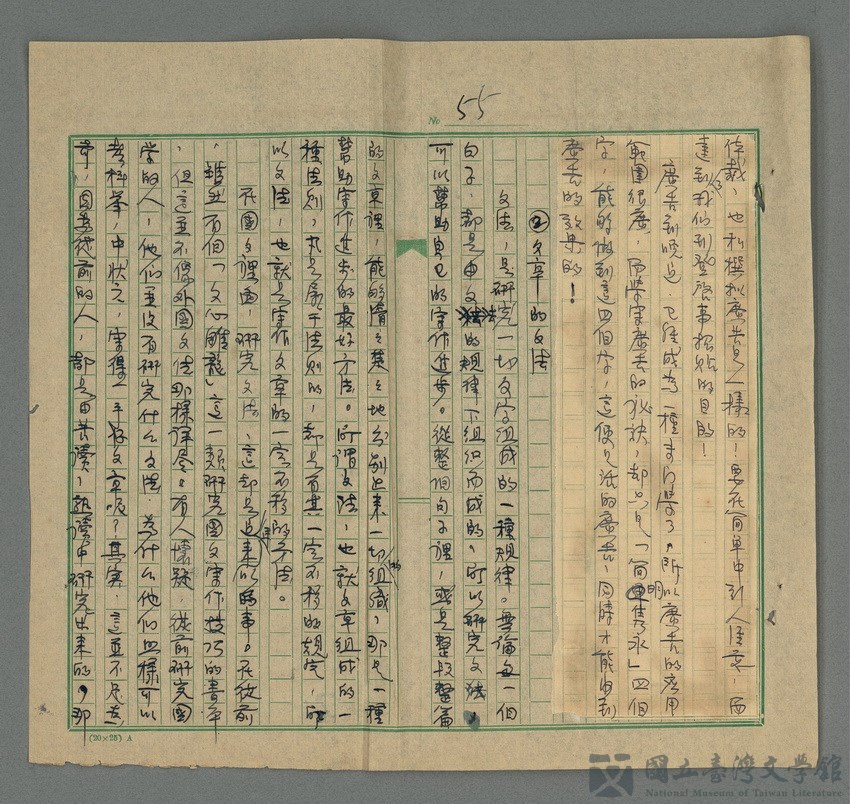 № 55
傳載，也和撰拟廣告是一樣的！要在简單中引人注意，而
達到我们刊登啓事招貼的目的！
廣告到現在，已經成為一種專门學了。所以廣告的应用
範圍很廣，而學字廣告的秘訣，却只是「简單明永」四個
字，能夠做到這四個字，這便是活的廣告，同時才能收到
廣告的效果的！
②文章的文法
文法，是研究一切文字組成的一種規律。無論一個
句子，都是由文法的規律下組织而成的，所以研究文法，
可以幫助自己的寫作進步。從整個句子裡，或是整段整篇
的文章裡，能夠清清楚楚地分别出来一切的組織，那是一種
幫助寫作進步的最好方法。所謂文法，也就文章組成的一
種法则，凡是屬于法则的，都是有其一定不移的規定，所
以文法，也就是寫作文章的一定不移的方法。
在國文裡面，研究文法，這却是近来的事。在從前
，雖然有個「文心雕龍」這一類研究國文寫作技巧的書本
，但這並不像外國文法那樣详尽。有人懷疑，從前研究國
学的人，他们並没有研究什么文法，為什么他们照樣可以
考科举，中狀元，寫得一手好文章呢？其实，這並不足為
奇，因為從前的人，都是由苦讀，熟讀中研究出来的，那
(20×25) A
國立臺灣文學館
National Museum of Taiwan Literature